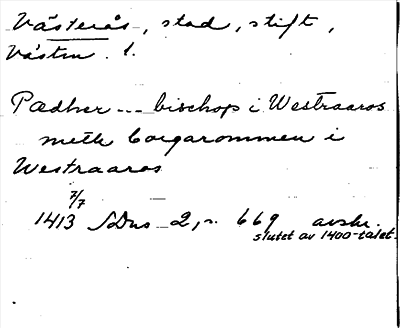 Västerås, stad, stift,
Västm. l.
Pædher --- bischop i Westraaros
meth borgarommen i
Westraaros
7/7
1413 SDns 2, n. 669 avskr.
slutet av 1400-talet.